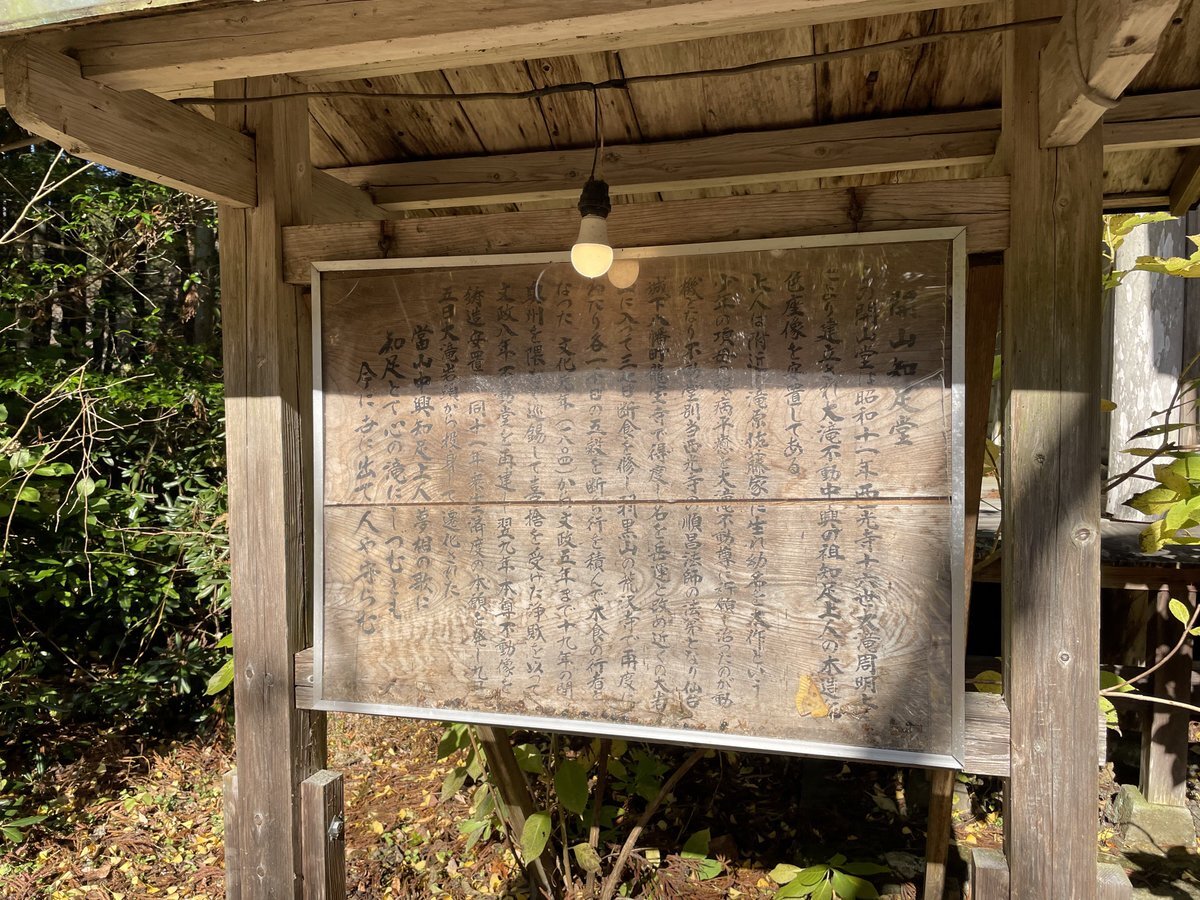 開山知足堂
開山堂は昭和十一年西光寺十六世大滝周明
より建立され大滝不動中興の祖知足上人の木造
色座像を安置してある
上人は附近 滝原佐藤家に生れ幼名を 作という
少年の頃 病平癒を大滝不動尊に祈願 治ったのが動
機となり不動堂別当西光寺 順呂法師の法弟となり仙台
城下八幡町龍宝寺で得度 名を岳運と改め近くの大
に入って三七日断食を修し羽黒山の荒沢寺で再度
わたり各一千日の五穀を断 行を積んで木食の行者
なつた 文化 年(一八 )から文政五年まで十九年の間
奥州を隈 巡錫して喜捨を受けた浄財を以って
文政八年不動堂を再建し翌九年本尊不動像を
鋳造安置 同十一年 済度の本願を 九
五日大滝岩頭から投 て遷化された
當山中興知足上人 夢相の歌に
知足とて心の滝に しつむとも
今に 出て人や守らむ